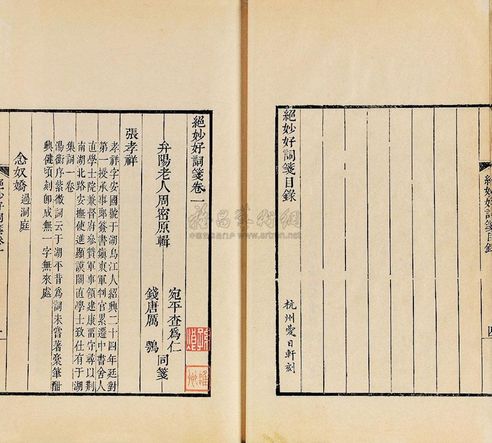 絕妙好詞箋目錄
杭州愛日軒刻
絕妙好詞箋目錄
絕妙好詞箋卷一
弁陽老人周密原輯
宛平查為仁
錢唐厲鶚
同箋
張孝祥
孝祥字安國號于湖烏江人紹興二十四年廷對
第一授承事郎簽書鎮東軍判官累遷中書舍人
直學士院兼督府參贊軍事領建康留守尋以荆
南湖北路安撫使進顯謨閣直學士致仕有于湖
集詞一卷
湯衡序紫微詞云于湖平昔為詞未嘗著稾筆酣
興健頃刻即成無一字無來處
念奴嬌 過洞庭
絕妙好詞箋卷一
www.artron.net